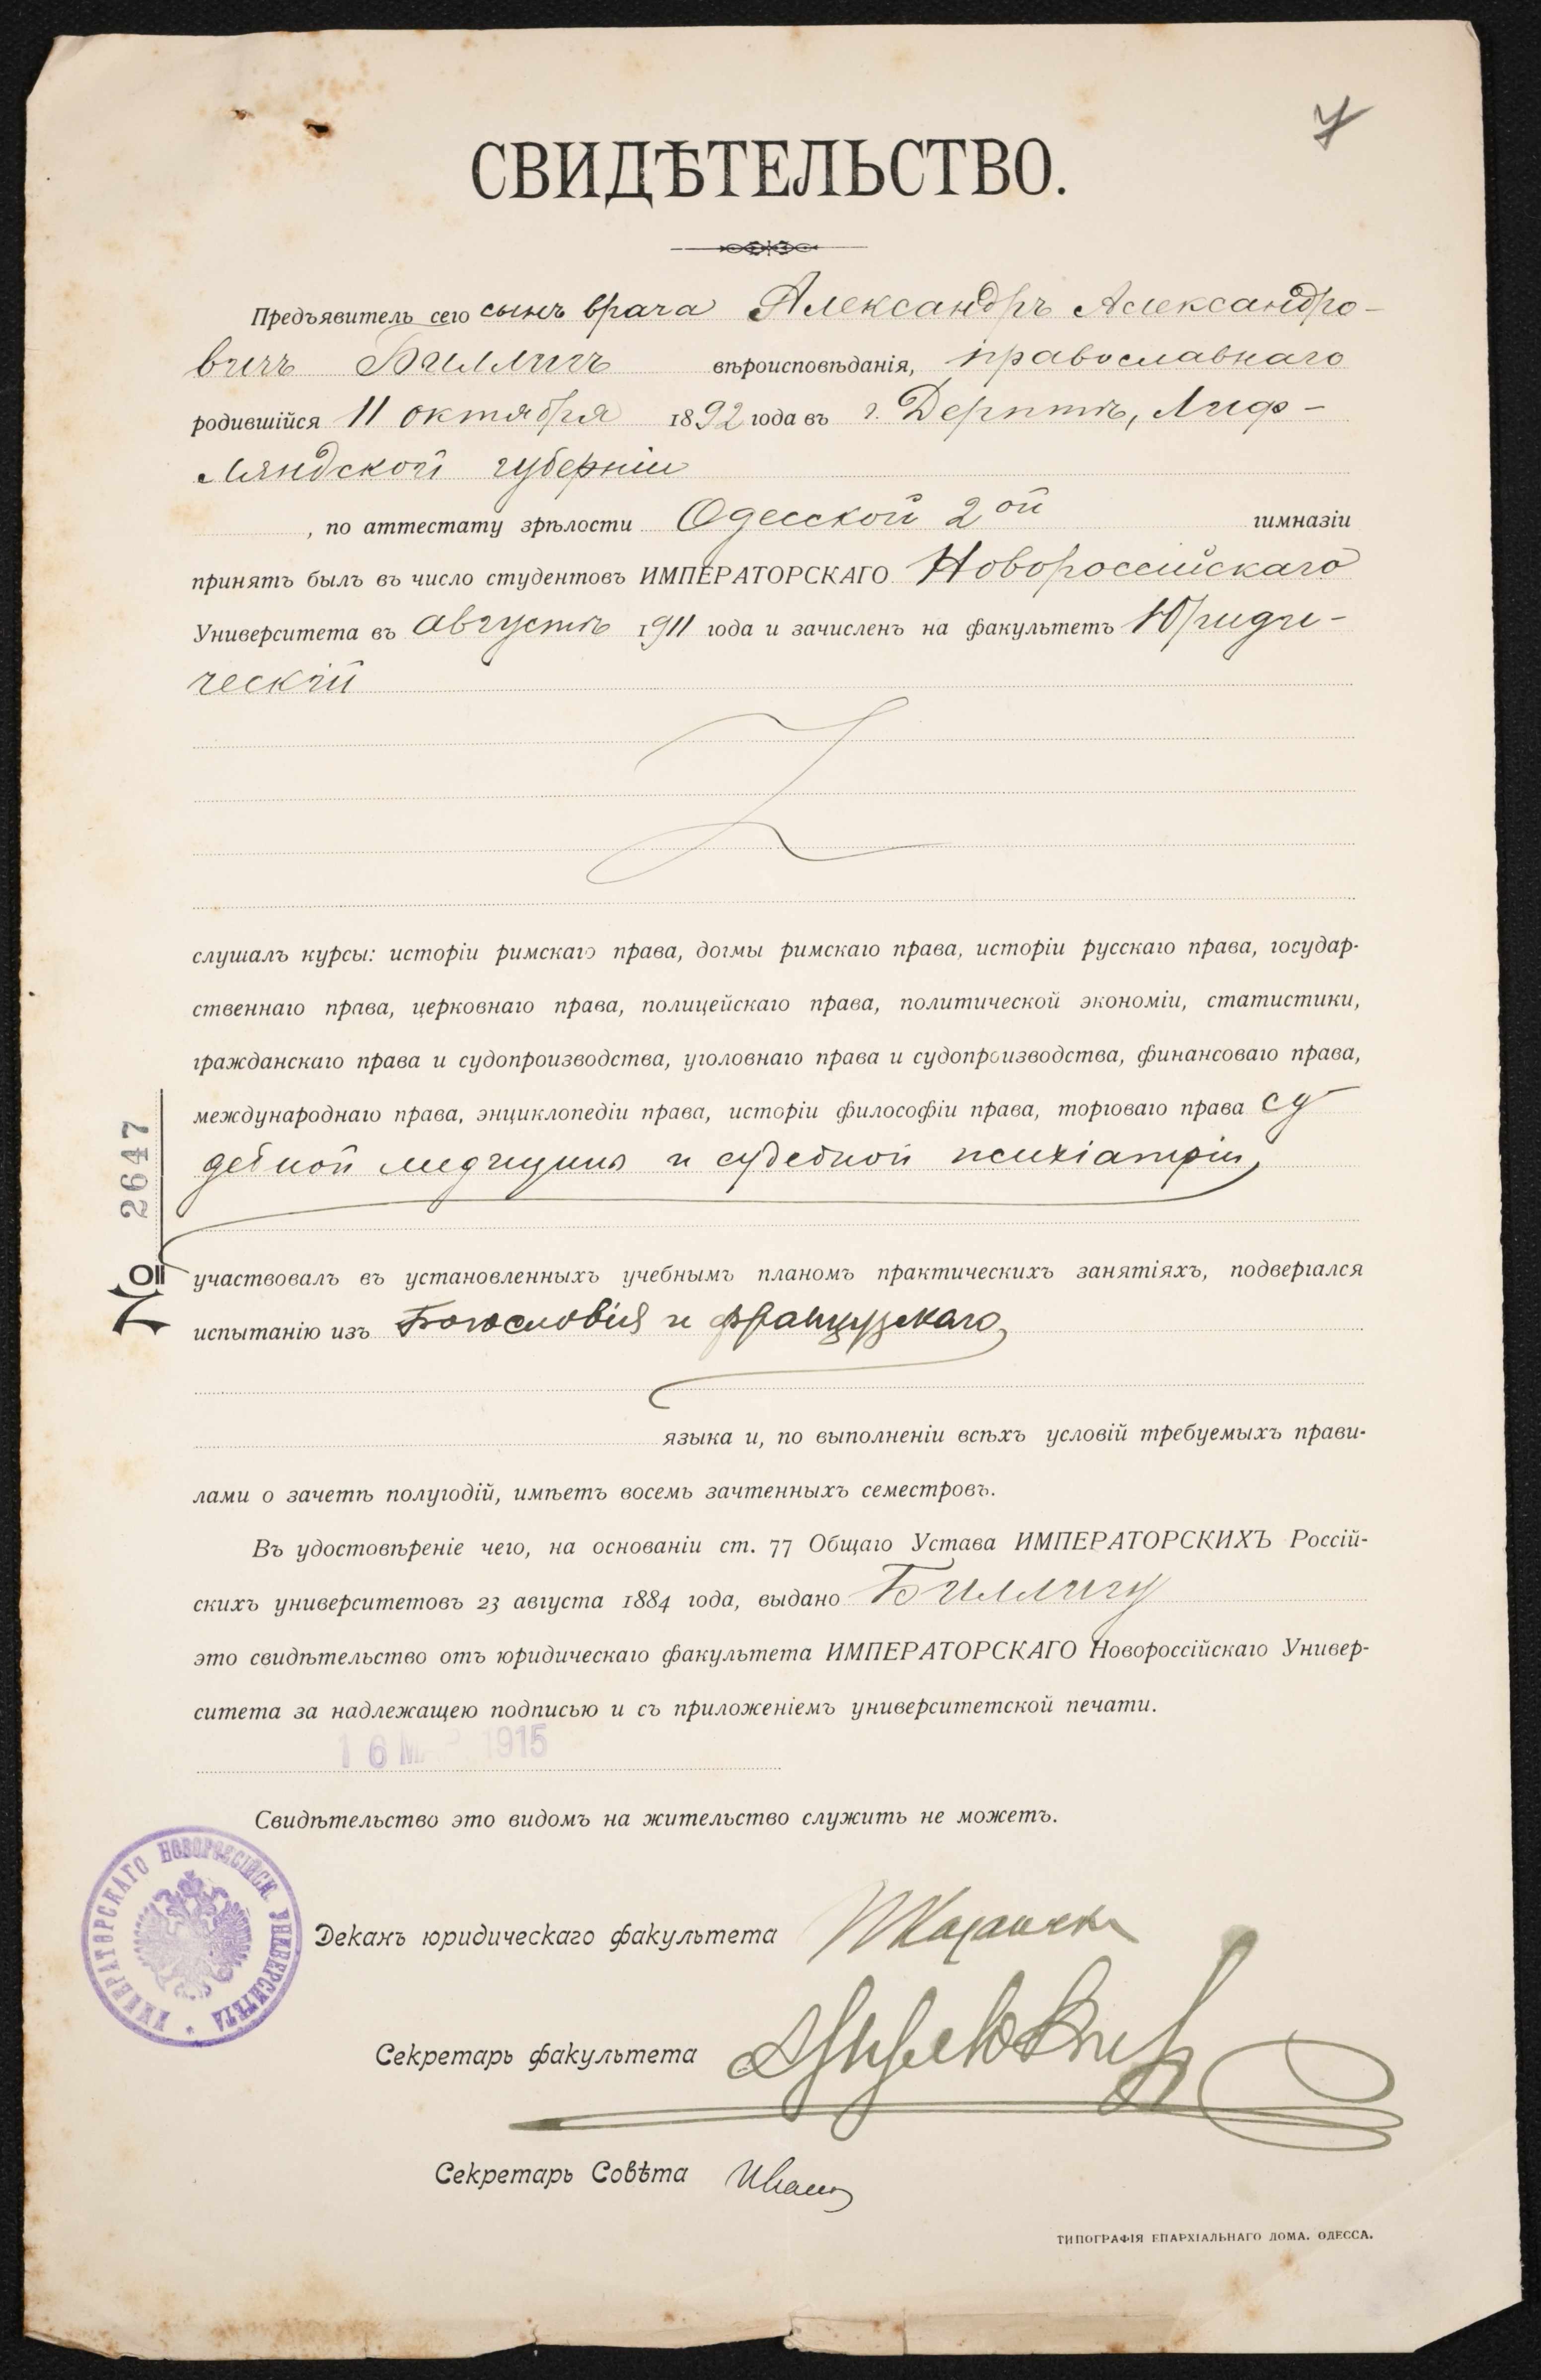 СВИДѢТЕЛЬСТВО.
Предъявитель сего сынъ врача Александръ Александро-
вичъ Биллигъ вѣроисповѣданія, православнаго
родившійся 11 октября 1892 года въ г. Дерптѣ, Лиф-
ляндской губерніи
, по аттестату зрѣлости Одесской 2ой гимназіи
принятъ былъ въ число студентовъ ИМПЕРАТОРСКАГО Новороссійскаго
Университета въ августѣ 1911 года и зачисленъ на факультетъ Юриди-
ческій
слушалъ курсы: исторіи римскаго права, догмы римскаго права, исторіи русскаго права, государ-
ственнаго права, церковнаго права, полицейскаго права, политической экономіи, статистики,
гражданскаго права и судопроизводства, уголовнаго права и судопроизводства, финансоваго права,
международнаго права, энциклопедіи права, исторіи философіи права, торговаго права су
дебной медицины и судебной психіатріи,
№ 2647
участвовалъ въ установленныхъ учебнымъ планомъ практическихъ занятіяхъ, подвергался
испытанію изъ Богословія и французскаго
языка и, по выполненіи всѣхъ условій требуемыхъ прави-
лами о зачетѣ полугодій, имѣетъ восемь зачтенныхъ семестровъ.
Въ удостовѣреніе чего, на основаніи ст. 77 Общаго Устава ИМПЕРАТОРСКИХЪ Россій-
скихъ университетовъ 23 августа 1884 года, выдано Биллигу
это свидѣтельство отъ юридическаго факультета ИМПЕРАТОРСКАГО Новороссійскаго Универ-
ситета за надлежащею подписью и съ приложеніемъ университетской печати.
16 МАР 1915
Свидѣтельство это видомъ на жительство служить не можетъ.
ИМПЕРАТОРСКАГО НОВОРОССІЙСК. УНИВЕРСИТЕТА *
Деканъ юридическаго факультета
Секретарь факультета
Секретарь Совѣта
ТИПОГРАФІЯ ЕПАРХІАЛЬНАГО ДОМА. ОДЕССА.